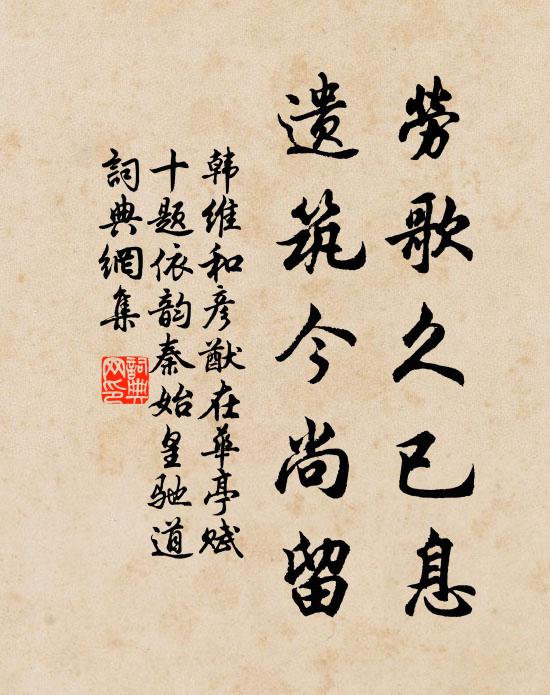 勞歌久已息
遗筑今尚留
韩維和彦猷在華亭赋
十題依韵秦始皇馳道
詞典網集
詞典网印